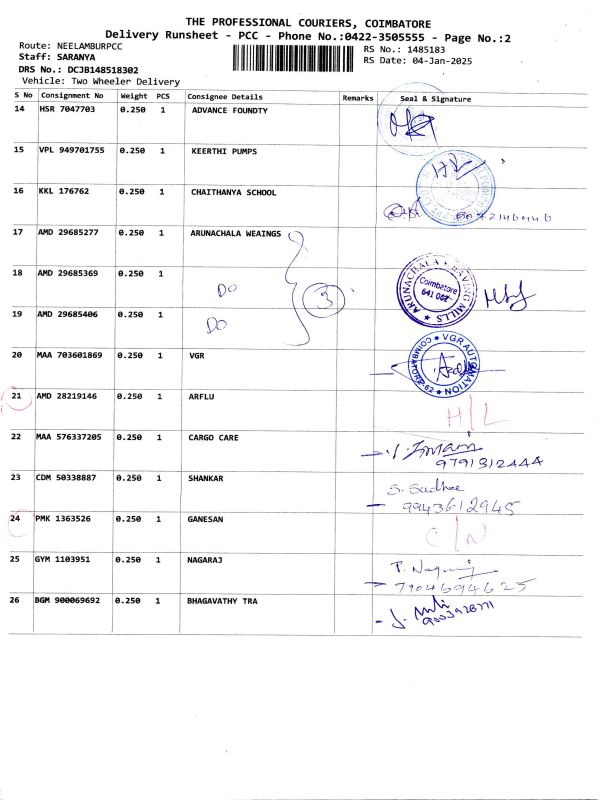 THE PROFESSIONAL COURIERS, COIMBATORE
Delivery Runsheet - PCC - Phone No.:0422-3505555 - Page No.:2
Route: NEELAMBURPCC
RS No.: 1485183
Staff: SARANYA
RS Date: 04-Jan-2025
DRS No.: DCJB148518302
Vehicle: Two Wheeler Delivery
S No Consignment No Weight PCS Consignee Details Remarks Seal & Signature
14 HSR 7047703 0.250 1 ADVANCE FOUNDTY
15 VPL 949701755 0.250 1 KEERTHI PUMPS
16 KKL 176762 0.250 1 CHAITHANYA SCHOOL
17 AMD 29685277 0.250 1 ARUNACHALA WEAINGS
18 AMD 29685369 0.250 1 DO 3
ARUNACHALA WEAVING MILLS
Coimbatore
641 062
19 AMD 29685406 0.250 1 DO
20 MAA 703601869 0.250 1 VGR
VGR AUTOMATION COIMBATORE-62
21 AMD 28219146 0.250 1 ARFLU H/L
22 MAA 576337205 0.250 1 CARGO CARE
9791312444
23 CDM 50338887 0.250 1 SHANKAR
S. Sudha
9943612945
24 PMK 1363526 0.250 1 GANESAN C/N
25 GYM 1103951 0.250 1 NAGARAJ
P. Nagaraj
7904694625
26 BGM 900069692 0.250 1 BHAGAVATHY TRA